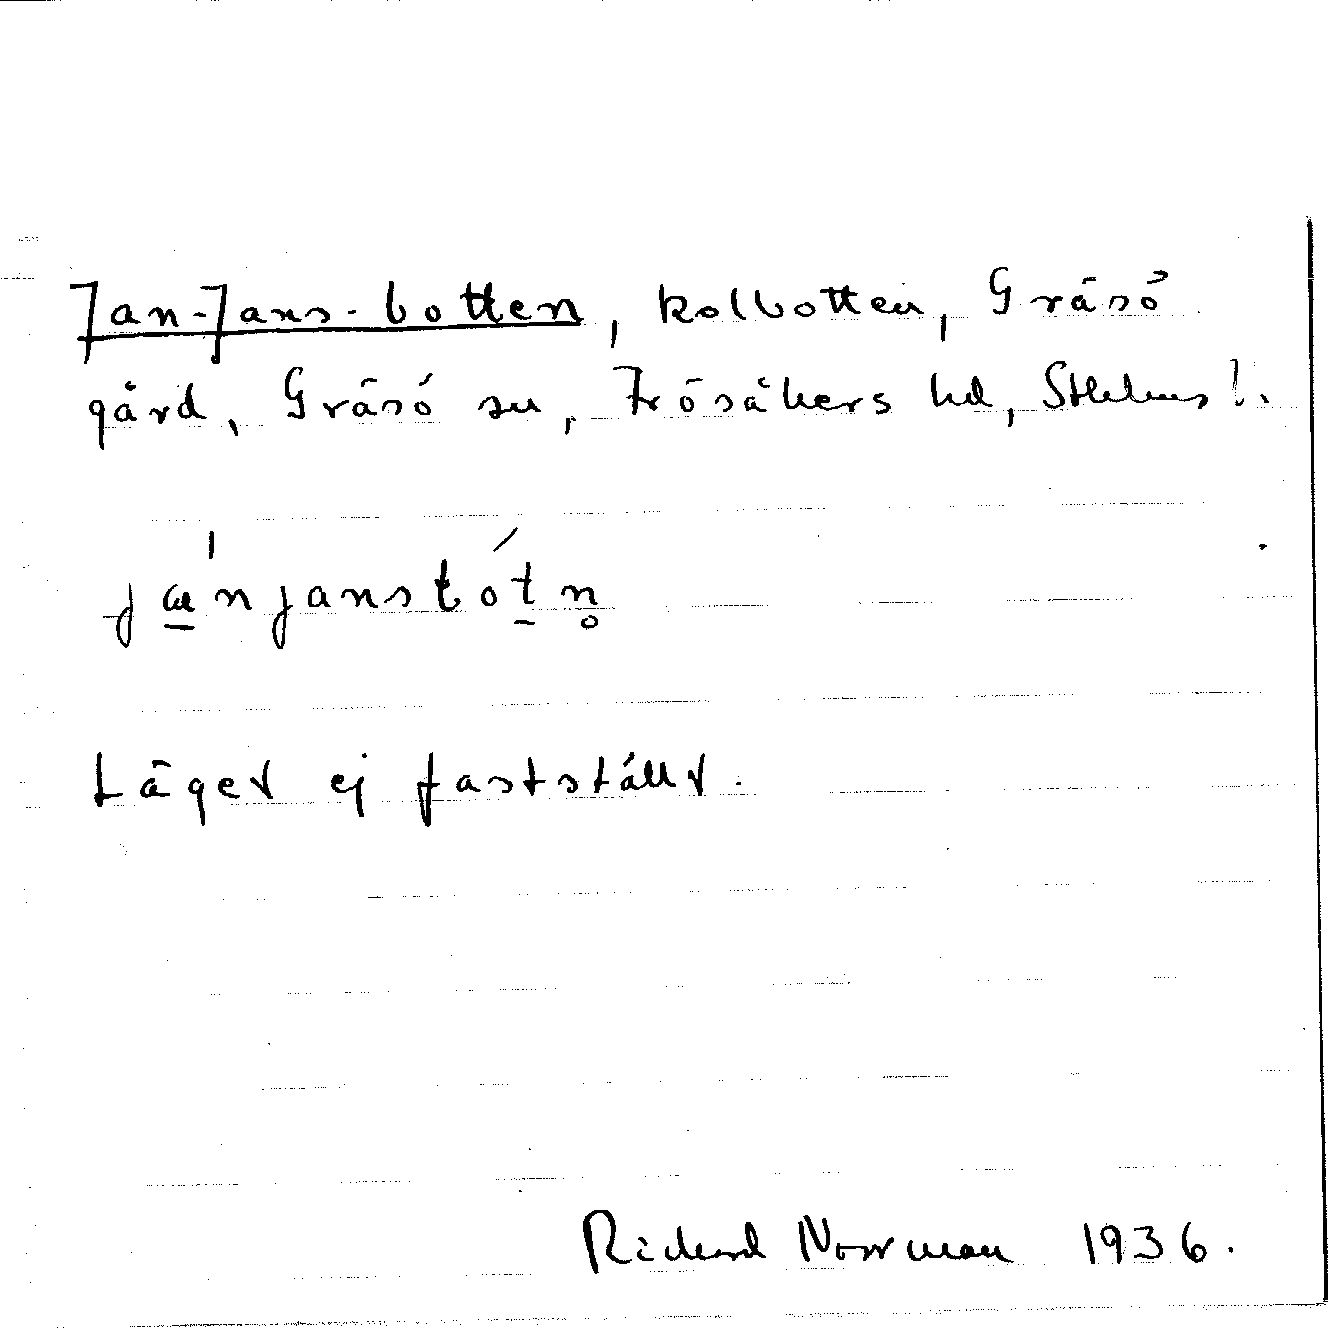 Jan-Jans-botten, kolbotten, Gräsö
gård, Gräsö sn, Frösåkers hd, Sthlms l.
Läget ej fastställt.
Richard Norrman 1936.